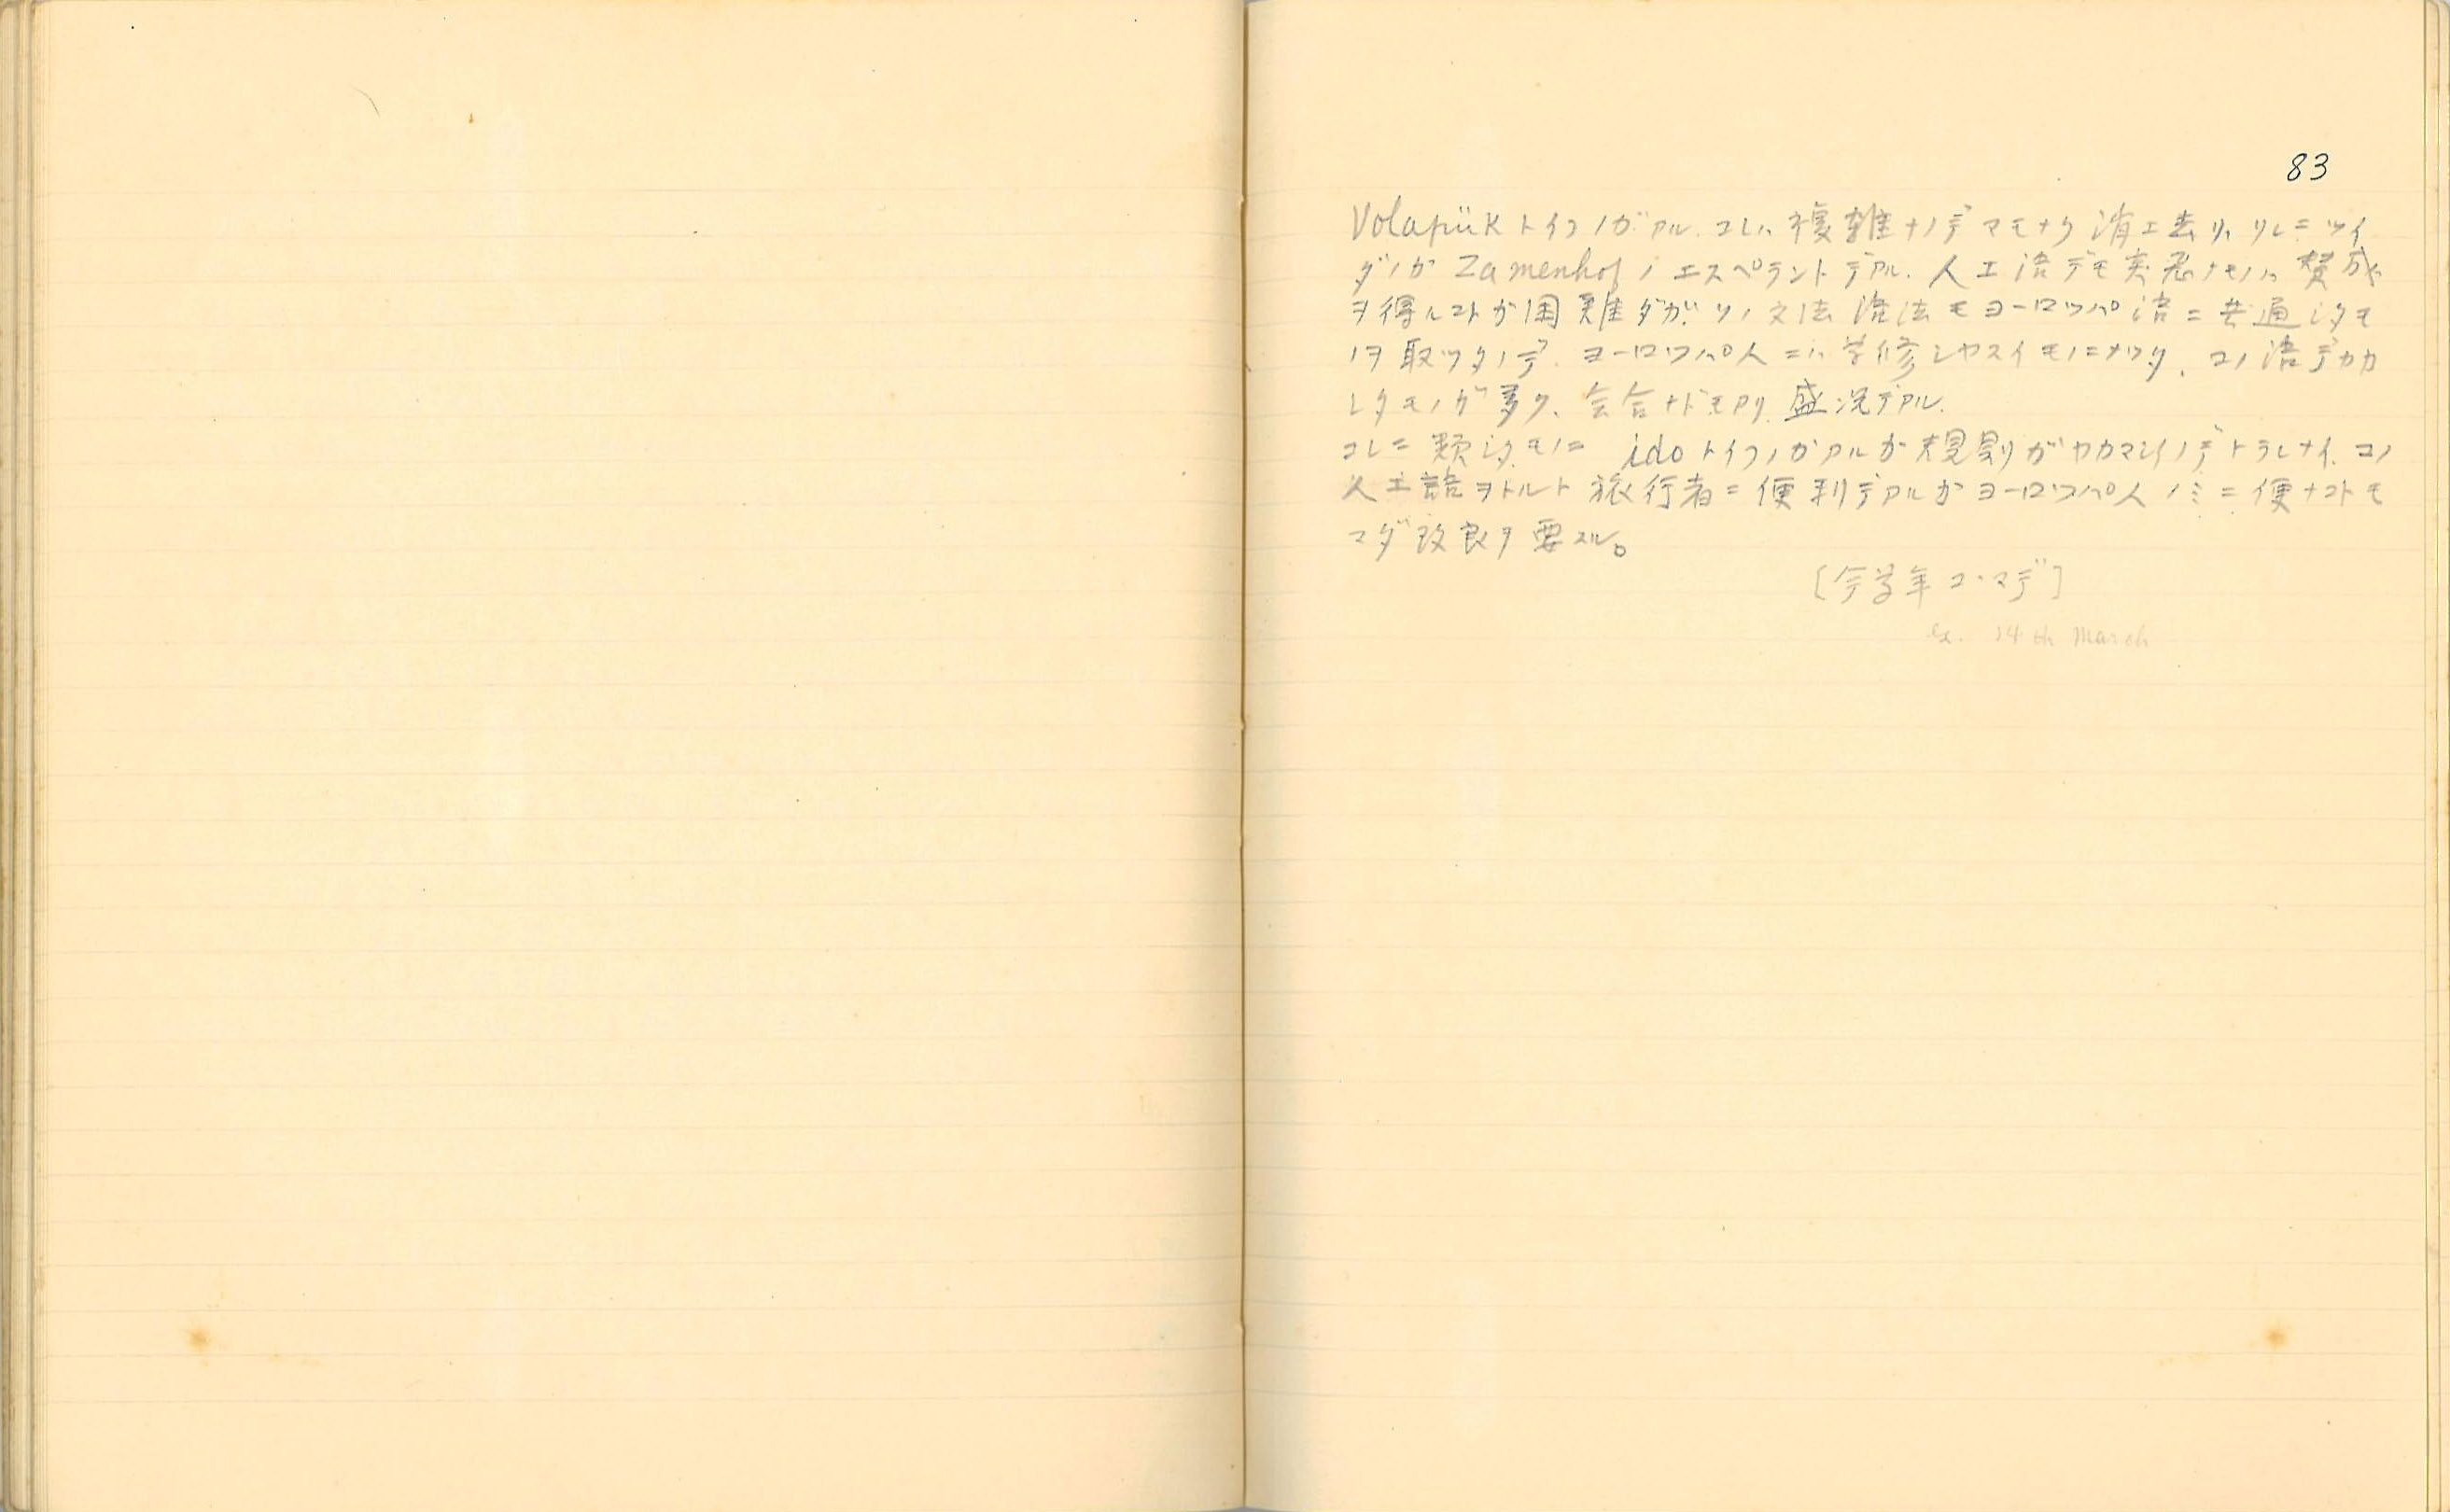 83
Volapük トイフノガアル. コレハ複雑ナノデマモナク消エ去リ, ソレニツイ
ダノガ Zamenhof ノエスペラントデアル. 人工語デモ ナモノハ賛成
ヲ得ルコトガ困難ダガ, ソノ文法語法モヨーロッパ語ニ共通シタモ
ノヲ取ッタノデ. ヨーロッパ人ニハ学修シヤスイモノニナッタ. コノ語デカカ
レタモノガ多ク、会合ナドモアリ盛況デアル.
コレニ類シタモノニ ido トイフノガアルガ規則ガヤカマシイノデトラレナイ. コノ
人工語ヲトルト旅行者ニ便利デアルガヨーロッパ人ノミニ便ナコトモ
マダ改良ヲ要スル。
[今学年コヽマデ]
ex. 14th March